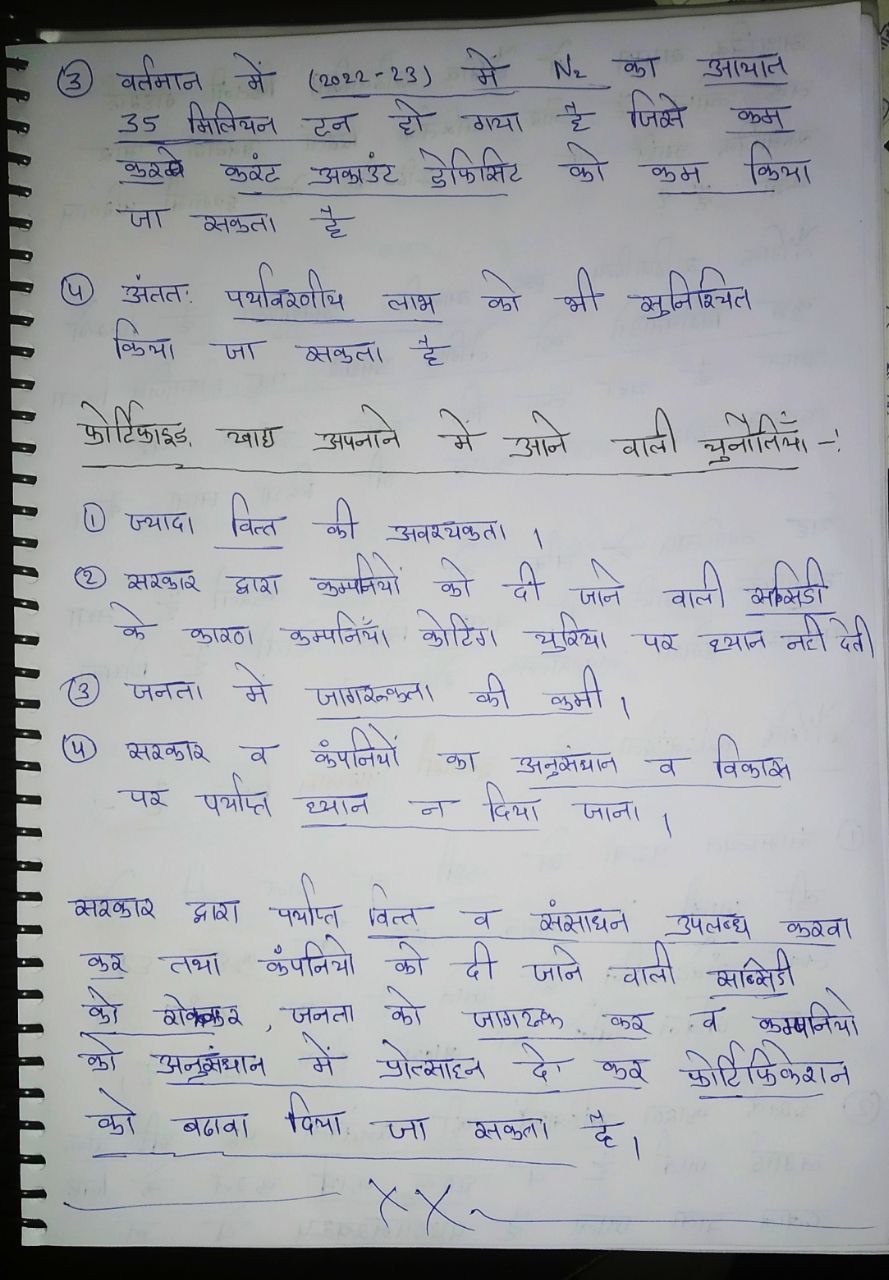 ③ वर्तमान में (2022-23) में N₂ का आयात
35 मिलियन टन हो गया है जिसे कम
करके करंट अकाउंट डेफिसिट को कम किया
जा सकता है
④ अंततः पर्यावरणीय लाभ को भी सुनिश्चित
किया जा सकता है
फोर्टिफाइड खाद्य अपनाने में आने वाली चुनौतियाँ -:
① ज्यादा वित्त की अवश्यकता ।
② सरकार द्वारा कम्पनियों को दी जाने वाली सब्सिडी
के कारण कम्पनियाँ कोटिंग युरिया पर ध्यान नही देती
③ जनता में जागरूकता की कमी ।
④ सरकार व कंपनियों का अनुसंधान व विकास
पर पर्याप्त ध्यान न दिया जाना ।
सरकार द्वारा पर्याप्त वित्त व संसाधन उपलब्ध करवा
कर तथा कंपनियो को दी जाने वाली सब्सिडी
को रोककर , जनता को जागरूक कर व कम्पनियो
को अनुसंधान में प्रोत्साहन दे कर फोर्टिफिकेशन
को बढावा दिया जा सकता है ।
XX